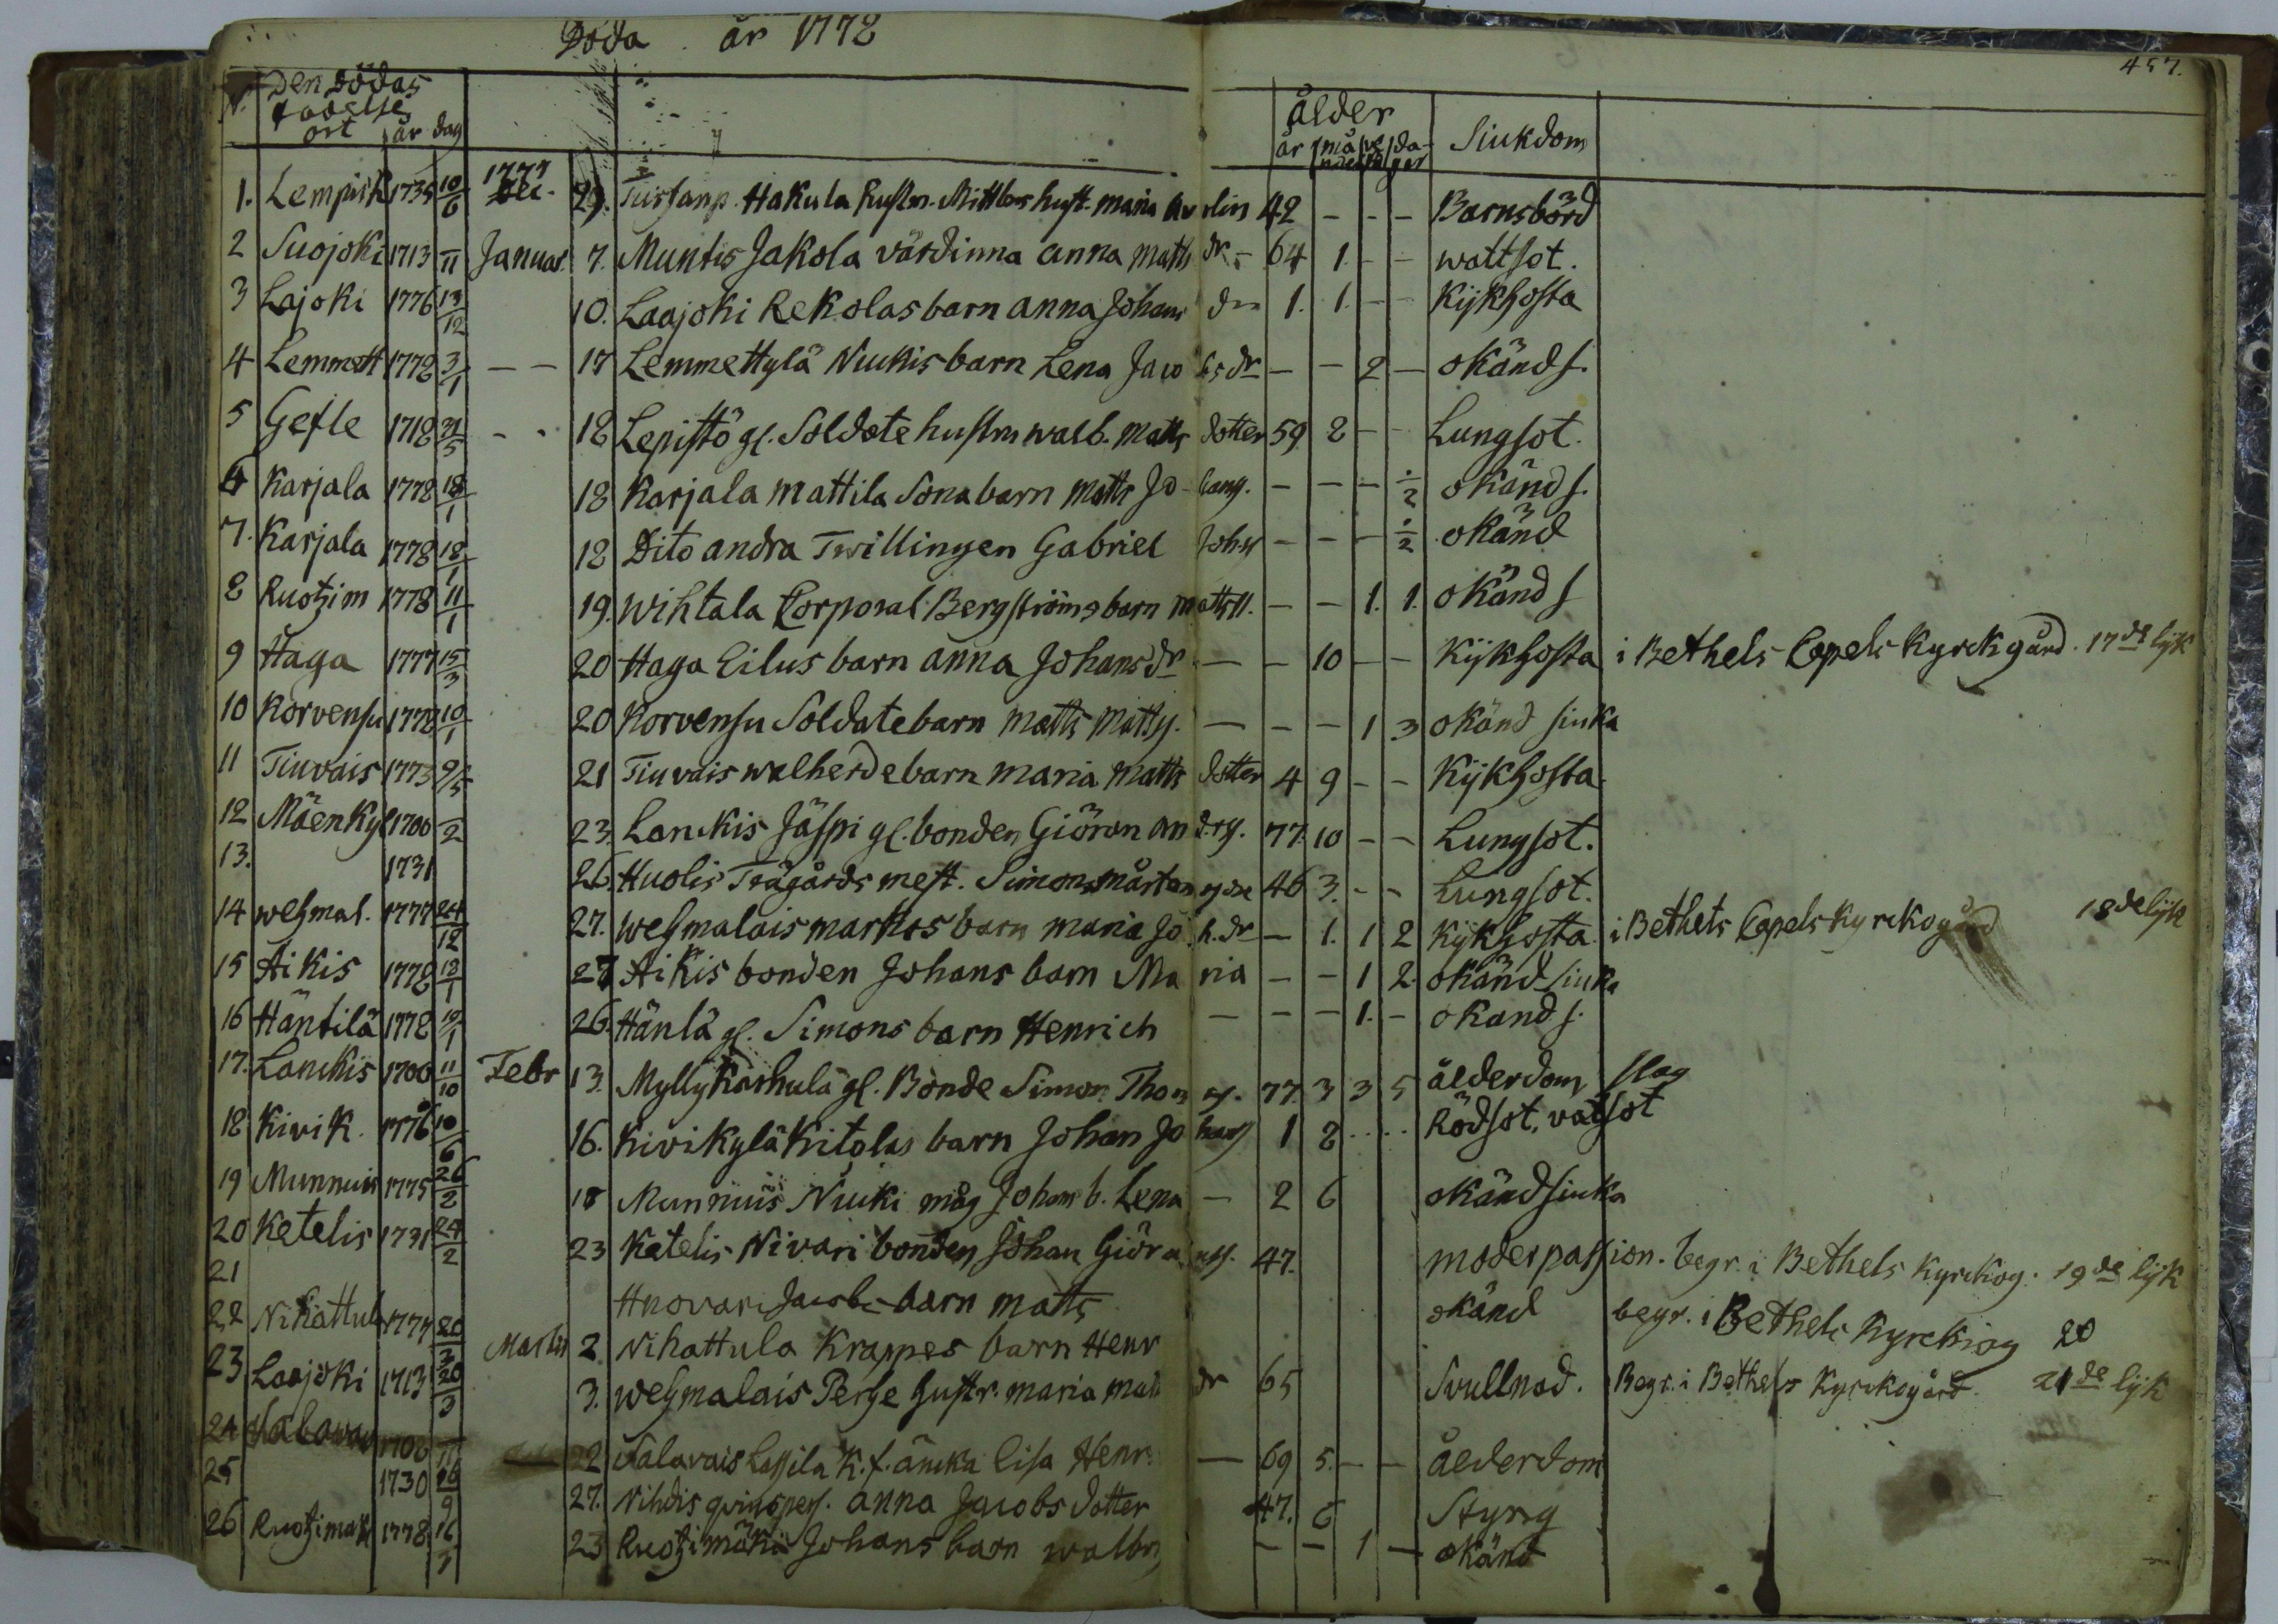 Döda år 1778
457.
N. Den Dödas födelse ort år dag ålder år måna der ve da gar Siukdom
1. Lempisk 1735 10/6 1777 Dec. 29. Hakula Rustm. hust. maria 42 - - - Barnsbörd
2 Suojoki 1713 /11 Januar. 7. Muntis Jakola värdinna anna Matts dr - 64 1. - - wattsot.
3 Lajoki 1776 13/12 10. Laajoki Rekolas barn anna Johans dr 1. 1. - - Kijkhosta
4 Lemmett 1778 3/1 - - 17 Lemmettylä Nuckis barn Lena Jacobs dr - - 2 - okänd s.
5 Gefle 1718 /5 - - 18 Lepistö gl. Soldate hustru walb. Matts dotter 59 8 - - Lungsot.
6 Karjala 1778 18/1 18 Karjala mattila Sona barn Matts Johans. - - - 1/2 okänd s.
7. Karjala 1778 18/1 18 Dito andra Twillingen Gabriel Johss - - - 1/2 okänd
8 Ruotzim 1778 11/1 19. Wihtala Corporal Bergströms barn Mattss. - - 1. 1. okänd s
9 Haga 1777 15/3 20 Haga Eilus barn anna Johans dr - - 10 - - Kijkhosta i Bethels Capels Kyrckgård. 17de lijk
10 Korvensu 1778 10/1 20 Korvensu Soldatebarn Matts Mattss. - - - 1 3 okänd siuka
11 Tiuvais 1773 9/5 21 Tiuvais walherde barn maria Matts dotter 4 9 - - Kijkhosta
12 Mäenkyl 1700 /2 23. Lanckis Jäspi gl. bonden Giöran Anderss. 77. 10 - - Lungsot.
13. 1731 26. Huolis Trägårds mest. Simons mårten 46 3. - - Lungsot.
14 wehmal. 1777 24/12 27. wehmalais markos barn maria Joh. dr - 1. 1 2 Kijkhosta. i Bethels Capels Kyrckogård 18de lijk
15 Aikis 1778 18/1 27 Aikis bonden Johans barn Maria - - 1 2. okänd siuka
16 Häntilä 1778 19/1 26. Hänlä gl. Simons barn Henrich - - - 1. - okand s.
17. Lanckis 1700 11/10 Febr 13. Myllykarhula gl. Bonde Simon Thomas. 77 3 3 5 ålderdom slag
18 Kivik. 1776 10/6 16. Kivikylä Kitolas barn Johan Johans 1 8 .... Rödsot, vatsot
19 Munnuis 1775 26/2 18 Munnuis Nuuki måg Johans b. Lena - 2 6 okänd siuka
20 Ketelis 1731 24/2 23 Ketelis Nivari bonden Johan Giöranss. 47. moderpassion. begr. i Bethels Kyrckog. 19de lijk
21 Hnovari Jacobs barn matts okänd begr. i Bethels Kyrckiog 20
22 Nihattul 1777 20/3 Martii 2 Nihattula Krappes barn Henr
23 Laajoki 1713 20/3 3. wehmalais Perhe hustr. maria mats dr 65 Svullnad. Begr. i Bethels Kyrckogård. 21de lijk
24 1708 /11 22 Salavais Lassila k. f. änka Lisa Henr - 69 5. - - ålderdom
25 1730 26/9 27. Nihdis qvinspers. anna Jacobs dotter 47. 6 Styng
26 Ruotzimäk 1778 16/3 23 Ruotzimäki Johans barn walbr - - 1 - okänd